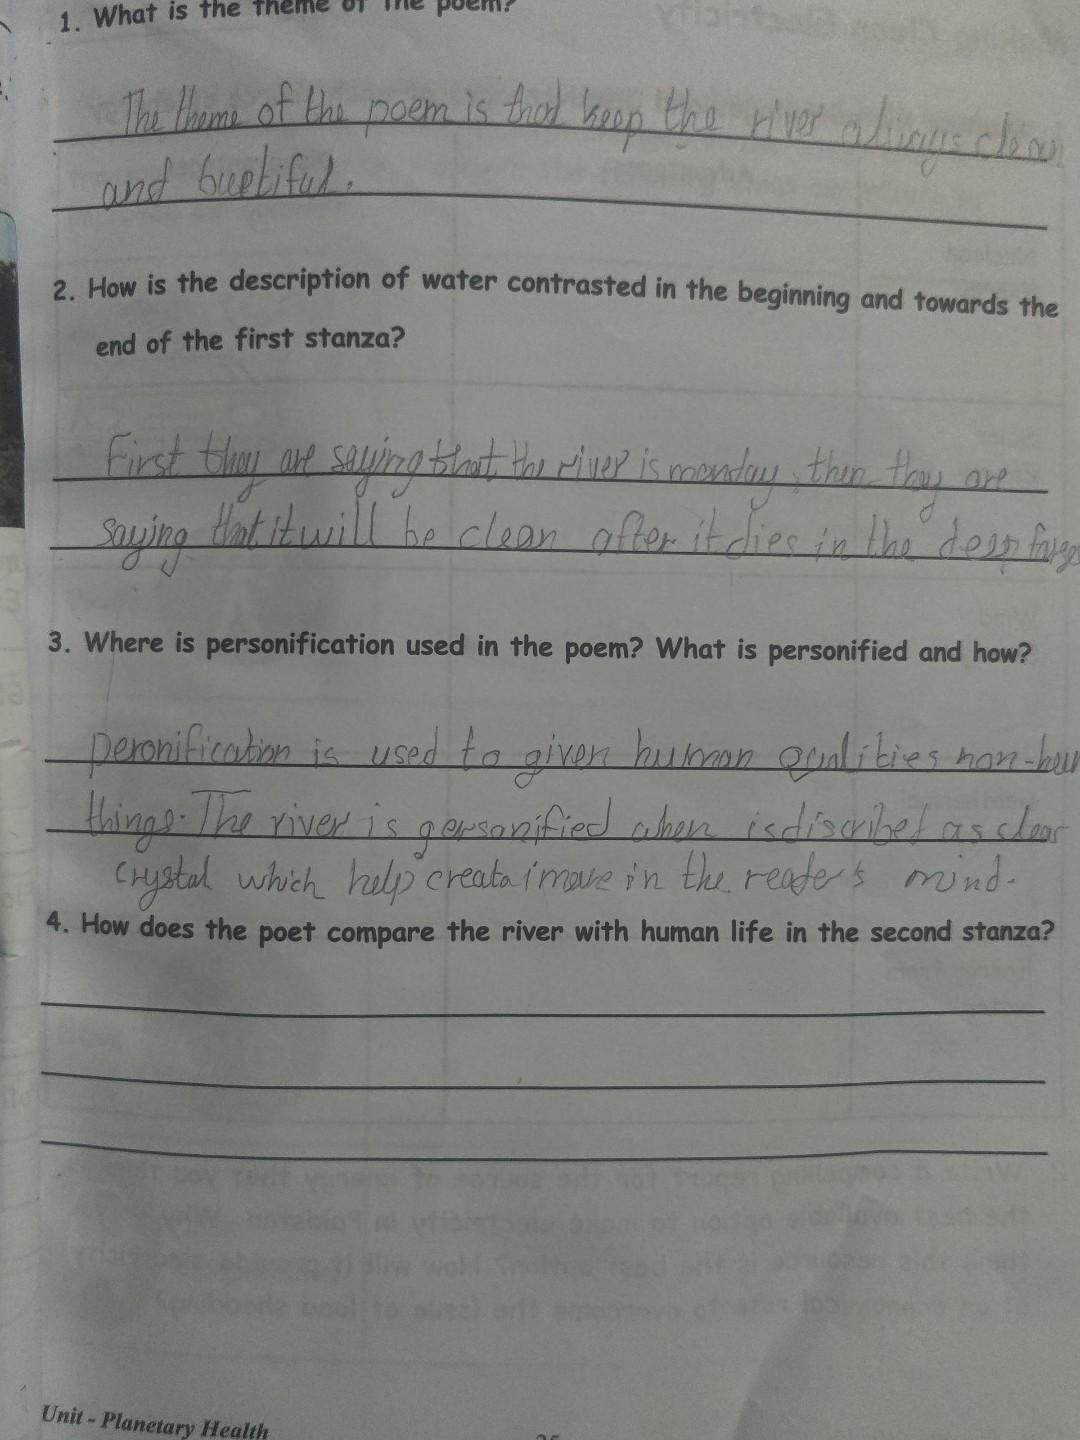 1. What is the theme of the poem?
The theme of the poem is that keep the river always clean
and buetiful.
2. How is the description of water contrasted in the beginning and towards the
end of the first stanza?
First they are saying that the river is monday, then they are
saying that it will be clean after it dies in the deep
3. Where is personification used in the poem? What is personified and how?
Peronification is used to given human qualities non-hum
things. The river is personified when is discribet as clear
crystal which help creata in the reader's mind.
4. How does the poet compare the river with human life in the second stanza?
Unit - Planetary Health